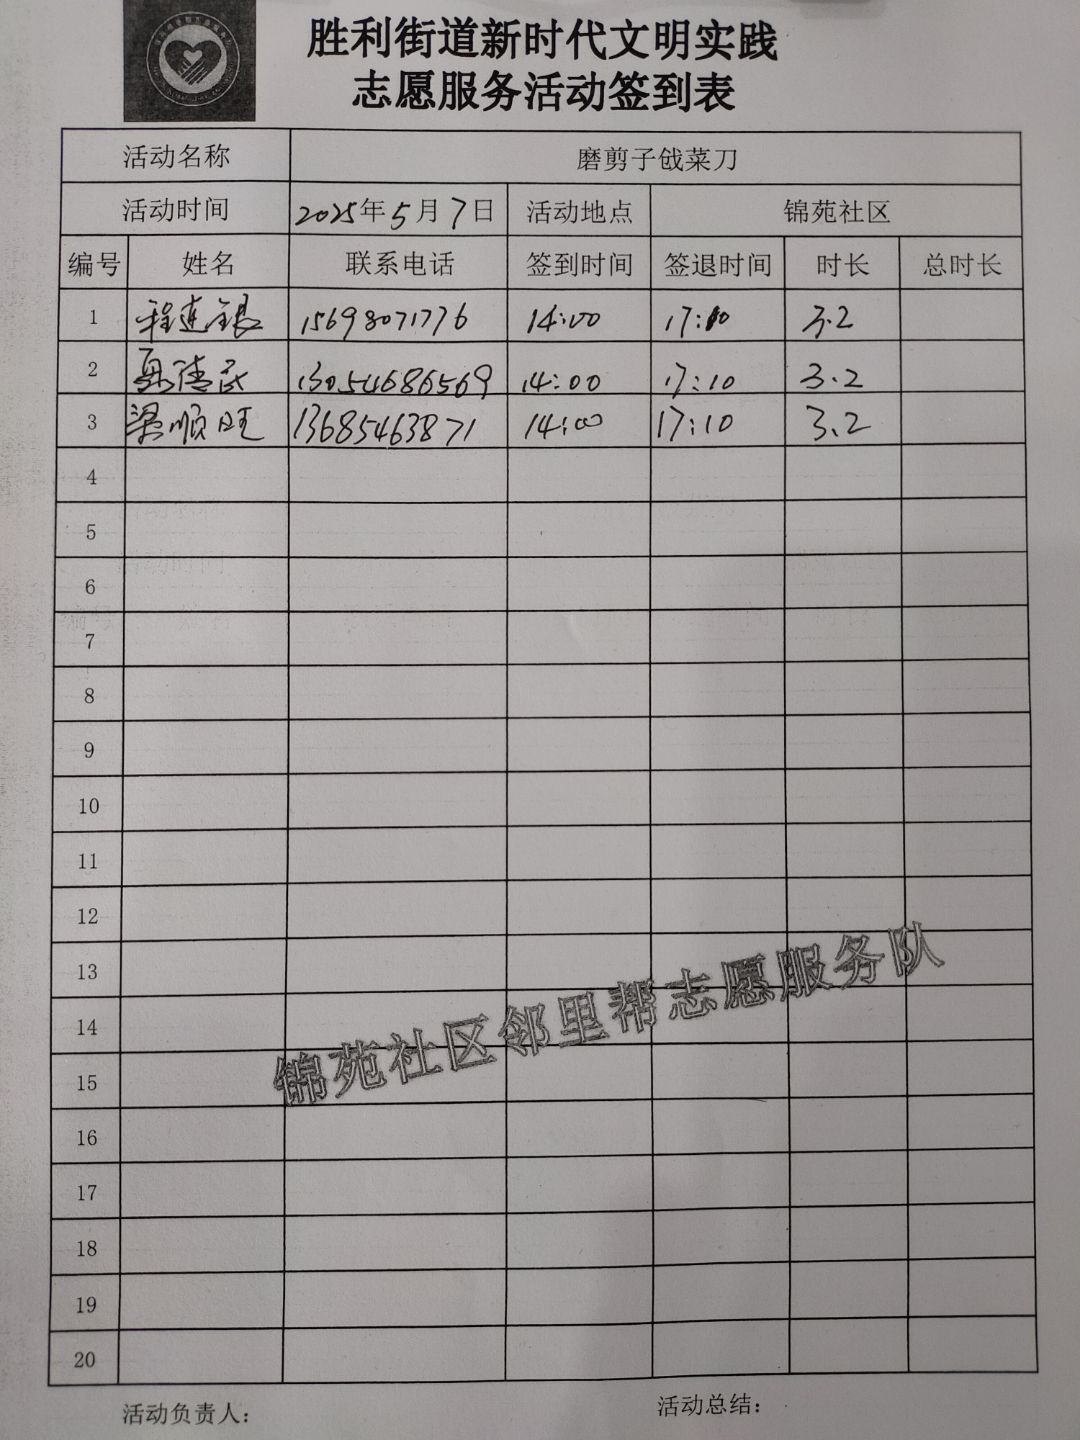 胜利街道新时代文明实践
志愿服务活动签到表
活动名称 磨剪子戗菜刀
活动时间 2025年5月7日 活动地点 锦苑社区
编号 姓名 联系电话 签到时间 签退时间 时长 总时长
1 程连银 15698071776 14:00 17:10 3.2
2 清民 13054686569 14:00 17:10 3.2
3 梁顺旺 13685463871 14:00 17:10 3.2
4
5
6
7
8
9
10
11
12
13
14
15
16
17
18
19
20
锦苑社区邻里帮志愿服务队
活动负责人： 活动总结：